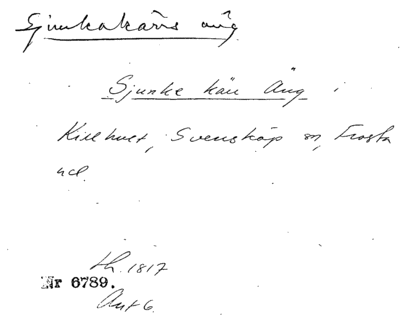 Sjunkakärrs äng
Sjunke kärr Äng i
Killhult, Svensköp sn, Frosta
hd.
Lh. 1817
Nr 6789.
Akt 6.